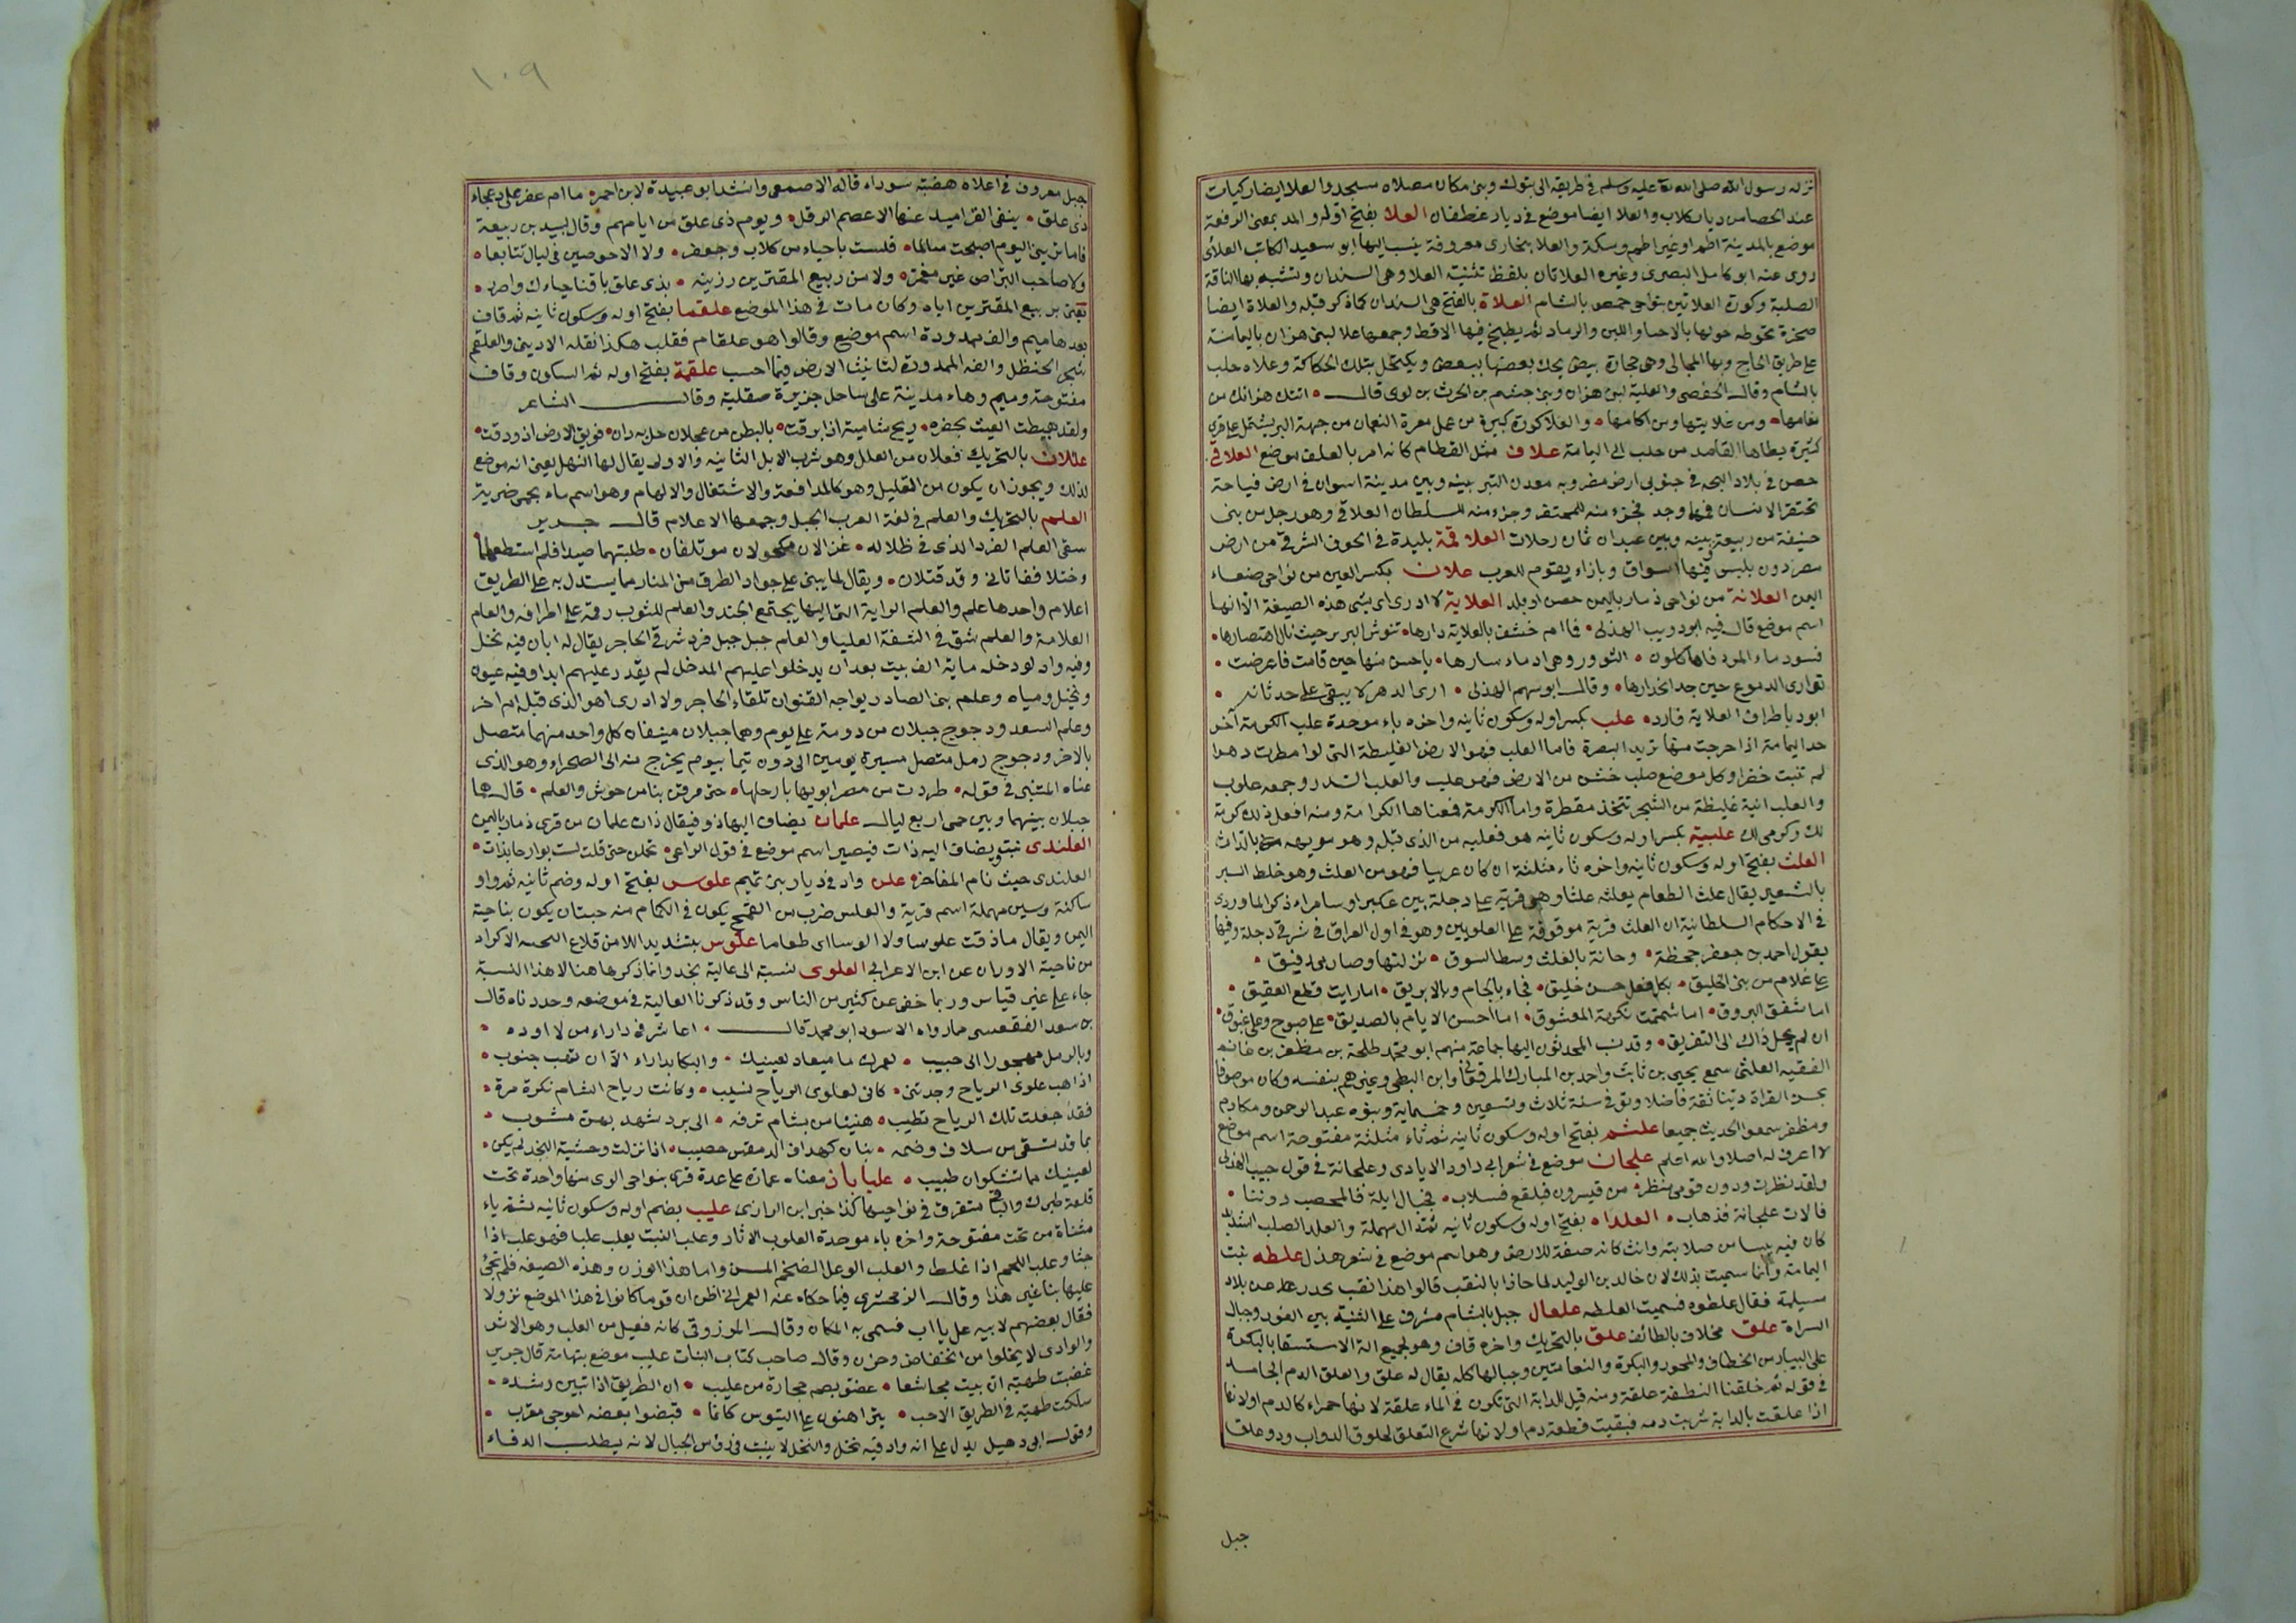 نزله رسول الله صلى الله عليه وسلم في طريقه الى تبوك وبنى مكان مصلاه مسجد والعلا ايضا ركيات
عند الحصا من ديار كلاب والعلا ايضا موضع في ديار غطفان العلا بفتح اوله والمد بمعنى الرفعة
موضع بالمدينة اطم او غير اطم وسكة والعلا ببخارى معروفة ينسب اليها ابو سعيد الكاتب العلائى
روى عنه ابو كامل البصرى وغيره العلاتان بلفظ تثنية العلا وهى السندان وتشبه بها الناقة
الصلبة وكورة العلاتين بنواحى حمص بالشام العلاة بالفتح هى السندان كما ذكر قبله والعلاة ايضا
صخرة يحوطه حولها بالاحثا واللبن والرماد ثم يطبخ فيها الاقط وجمعها علا لبنى هزان باليمامة
على طريق الحاج وبها المجالى وهى حجارة بيض يحك بعضها ببعض ويكتحل بتلك الحكاكة وعلاه حلب
بالشام وقال الحفصى والعلية لبنى هزان وبنى جشم بن الحرث بن لوى قال اتتك هزانك من
نعامها ومن علايتها ومن اكامها والعلا كورة كبيرة من عمل معرة النعمان من جهة البر يشتمل على قرى
كثيرة يطاها القاصد من حلب الى اليمامة علاف مثل القطام كانه امر بالعلف موضع العلاقى
حصن في بلاد البجه في جنوبى ارض مصر وبه معدن التبر بينه وبين مدينة اسوان في ارض فياحة
تحتفر الانسان فيها وجد فجزء منه للمحتفر وجزء منه للسلطان العلاقى وهو رجل من بنى
حنيفة من ربيعة بينه وبين عيذاب ثمان رحلات العلاقمة بليدة في الحوف الشرقى من ارض
مصر دون بلبيس فيها اسواق وبازاء يقوم للعرب علان بكسر العين من نواحى صنعاء
اليمن العلانة من نواحى ذمار باليمن حصن او بلد العلاية لا ادرى اى شى هذه الصيغة الا انها
اسم موضع قال فيه ابو ذويب الهذلى فما ام خشف بالعلاية دارها تنوش البرير حيث نال اهتصارها
فسود ماء المرد فاها كلون النوور وهى ادماء سارها باحسن منها حين قامت فاعرضت
توارى الدموع حين جد انحدارها وقال ابو سهم الهذلى ارى الدهر لا يبقى على حدثانه
ابود باطراف العلاية فارد علب بكسر اوله وسكون ثانيه واخره باء موحدة علب الكرمة آخر
حد اليمامة اذا خرجت منها تريد البصرة فاما العلب فهو الارض الغليظة التى لو امطرت دهرا
لم تنبت خضرا وكل موضع صلب خشن من الارض فهو علب والعلب السدر وجمعه علوب
والعلب انية غليظة من الشجر تتخذ مقطرة واما الكرمة فمعناها الكرامة ومنه افعل ذلك كرمة
لك وكرمى لك علبية بكسر اوله وسكون ثانيه هو فعلية من الذى قبله وهو مويهه بالداث
العلث بفتح اوله وسكون ثانيه واخره ثاء مثلثة ان كان عربيا فهو من العلث وهو خلط البر
بالشعير يقال علث الطعام يعلثه علثا وهى قرية على دجلة بين عكبرا وسامراء ذكر الماوردى
في الاحكام السلطانية ان العلث قرية موقوفة على العلويين وهو في اول العراق في شرقى دجلة وفيها
يقول احمد بن جعفر جحظة وحانة بالعلث وسط السوق نزلتها وصارمى رفيق
على غلام من بنى الخليق بكل فعل حسن خليق فجاء بالجام وبالابريق اما رايت قطع العقيق
اما شفق البروق اما شممت نكهة المعشوق اما احسن الايام بالصديق على صبوح وعلى غبوق
ان لم يحل ذاك الى التفريق وقد نسب المحدثون اليها جماعة منهم ابو محمد طلحة بن مظفر بن غانم
الفقيه العلثى سمع يحيى بن ثابت واحد بن المبارك المرقعاتى وابن البطى وغيرهم بنفسه وكان موصوفا
بحسن القراة دينا ثقة فاضلا وتوفى سنة ثلاث وتسعين وخمسماية وبنوه عبد الرحمن ومكارم
ومظفر سمعوا الحديث جميعا علثم بفتح اوله وسكون ثانيه ثم ثاء مثلثة مفتوحة اسم موضع
لا اعرف له اصلا والله اعلم علجان موضع في شعر ابى داود الايادى وعلجانة في قول حبيب الهذلى
ولقد نظرت ودون قومى منظر من قيسرون فبلقع فسلاب فجبال ايلة فالمحصب دوننا
فالات علجانة فذهاب العلدا بفتح اوله وسكون ثانيه ثم دال مهملة والعلد الصلب الشديد
كان فيه يبسا من صلابته وانث كانه صفة للارض وهو اسم موضع في شعر هذل علطه نبت
اليمامة وانما سميت بذلك لان خالد بن الوليد لما حاذا بالنقب قالوا هذا نقب يحدر على بلاد
مسيلمة فقال علطوه فسميت العلطه علعال جبل بالشام مشرف على الثنية بين الغور وجبال
السراة علق مخلاف بالطائف علق بالتحريك واخره قاف وهو لجميع الة الاستسقا بالبكرة
على البيار من الخطاف والمحور والبكرة والنعامتين وحبالها كله يقال له علق والعلق الدم الجامد
في قوله ثم خلقنا النطفة علقة ومنه قيل للدابة التى تكون في الماء علقة لانها حمراء كالدم اولانها
اذا علقت بالدابة شربت دمه فبقيت قطعة دم اولانها شرع التعلق لحلوق الدواب وذو علق
جبل
١٠٩
جبل معروف في اعلاه هضبة سوداء قاله الاصمعى وانشد ابو عبيدة لابن احمر ما ام عفر على دعجاء
ذى علق ينفى القراميد عنها الاعصم الوقل ويوم ذى علق من ايامهم وقال لبيد بن ربيعة
فاما ترينى اليوم اصبحت سالما فلست باحياء من كلاب وجعفر ولا الاحوصين في ليال تتابعا
ولا صاحب البراض غير مغمر ولا من ربيع المقترين رزيته بذى علق باقنا حياءك واصبر
يعنى ربيع المقترين اباه وكان مات في هذا الموضع علقما بفتح اوله وسكون ثانيه ثم قاف
بعدها ميم والف ممدودة اسم موضع وقالوا هو علقام فقلب هكذا نقله الاديبى والعلقم
شجر الحنظل والفه الممدودة لتانيث الارض فيما احسب علقمة بفتح اوله ثم السكون وقاف
مفتوحة وميم وهاء مدينة على ساحل جزيرة صقلية وقال الشاعر
ولقد هبطت الغيث بحفره ريح شامية اذا برقت بالبطن من عجلان حل به دان فويق الارض اذ ودقت
عللان بالتحريك فعلان من العلل وهو شرب الابل الثانيه والاولى يقال لها النهل يعنى انه موضع
لذلك ويجوز ان يكون من التعليل وهو كالمدافعة والاشتغال والالهام وهو اسم ماء بحمى ضرية
العلم بالتحريك والعلم في لغة العرب الجبل وجمعها الاعلام قال جرير
سقى العلم الفرد الذى في ظلاله غزالان مكحولان موتلفان طلبتهما صيدا فلم استطعهما
وختلا ففاتانى وقد قتلان ويقال لما يبنى على جواد الطرق من المنار مما يستدل به على الطريق
اعلام واحدها علم والعلم الراية التى اليها يجتمع الجند والعلم للثوب رقمة على اطرافه والعلم
العلامة والعلم شق في الشفة العليا والعلم جبل جبل فرد شرقى الحاجر يقال له ابان فيه نخل
وفيه واد لو دخله ماية الف بيت بعد ان يدخلوا عليهم المدخل لم يقدر عليهم ابدا وفيه عيون
ونخيل ومياه وعلم بنى الصادر يواجه القنوان تلقاء الحاجر ولا ادرى اهو الذى قبله ام اخر
وعلم السعد ودجوج جبلان من دومة على يوم وهما جبلان منيفان كل واحد منهما متصل
بالاخر ودجوج رمل متصل مسيرة يومين الى دون تيما بيوم يخرج منه الى الصحراء وهو الذى
عناه المتنبى في قوله طردت من مصر ايديها بارجلها حتى مرقن بنا من جوش والعلم قال هما
جبلان بينهما وبين حمى اربع ليال علمان يضاف اليها ذو فيقال ذات علمان من قرى ذمار باليمن
العلندى نبت ويضاف اليه ذات فيصير اسم موضع في قول الراعى تحملن حتى قلت لست بوارحا بذات
العلندى حيث نام المفاخر علن واد في ديار بنى تميم علوس بفتح اوله وضم ثانيه ثم واو
ساكنة وسين مهملة اسم قرية والعلس ضرب من القمح يكون في الكمام منه حبتان يكون بناحية
اليمن ويقال ما ذقت علوسا ولا الوسا اى طعاما علوس بتشديد اللام من قلاع البحسه الاكراد
من ناحية الاوران عن ابن الاعرابى العلوى نسبة الى عالية نجد وانما ذكرها هنا لا هذا النسبة
جاء على غير قياس وربما خفى عن كثير من الناس وقد ذكرنا العالية في موضعه وحددناه قال
بن سعد الفقعسى مما رواه الاسود ابو محمد قال اعاشر في داراء من لا اوده
وبالرمل مهجورا الى حبيب لعمرك ما ميعاد بعينيك والبكا بداراء الا ان تهب جنوب
اذا هب علوى الرياح وجدتنى كانى لعلوى الرياح نسيب وكانت رياح الشام نكره مرة
فقد جعلت تلك الرياح تطيب هنيئا من بشام ترفه الى برد شهد بهن مشوب
بما قد تسقى من سلاف وضمه بنان كهداف الدمقس خصيب اذا نزلت وحشية النجد لم يكن
لعينيك مما تشكوان طبيب علياباذ معناه عمارة على عدة قرى بنواحى الرى منها واحدة تحت
قلعة طبرك والباقى متفرق في نواحيها كذا خبر ابن الرازى عليب بضم اوله وسكون ثانيه ثم ياء
مثناة من تحت مفتوحة واخره باء موحدة العلوب الاثار وعلب النبت يعلب علبا فهو علب اذا
جثا وعلب اللحم اذا غلظ والعلب الوعل الضخم المسن واما هذا الوزن وهذه الصيغة فلم يجئ
عليها بنا غير هذا وقال الزمخشرى فيما حكاه عنه العمرانى اظن ان قوما كانوا في هذا الموضع نزولا
فقال بعضهم لابيه عل يا اب فسمى به المكان وقال المرزوقى كانه فعيل من العلب وهو الاثر
والوادى لا يخلوا من انخفاض وحزن وقال صاحب كتاب النبات عليب موضع بتهامة قال جرير
غضبت طهية ان سبت مجاشعا عضو بصم حجارة من عليب ان الطريق اذا تبين رشده
سلكت طهية في الطريق الاخب يتراهنون على التيوس كانما قبضوا بعضه اعوجى مقرب
وقول ابى دهبل يدل على انه واد فيه نخل والنخل لا ينبت في رؤس الجبال لانه يطلب الدفاء